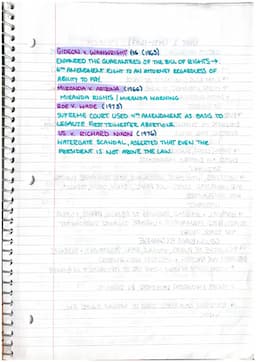 GIDEON V. WAINWRIGHT (1963)
ENHANCED THE GUARANTEES OF THE BILL OF RIGHTS →
6TH AMENDMENT RIGHT TO AN ATTORNEY REGARDLESS OF
ABILITY TO PAY.
MIRANDA V. ARIZONA (1966)
MIRANDA RIGHTS | MIRANDA WARNING
ROE V. WADE (1973)
SUPREME COURT USED 14TH AMENDMENT AS BASIS TO
LEGALIZE FIRST TRIMESTER ABORTIONS.
US V. RICHARD NIXON (1974)
WATERGATE SCANDAL, ASSERTED THAT EVEN THE
PRESIDENT IS NOT ABOVE THE LAW.